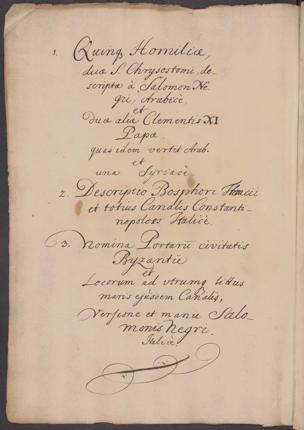 1. Quinq Homiliæ,
duæ S. Chrysostomi, de-
scriptæ à Salomon Ne-
gri, Arabicè.
et
duæ aliæ Clementis XI
Papæ
quas idem vertit Arab.
et
una Syriacè
2. Descriptio Bosphori Thracii
et totius Canalis Constanti-
nopoleos Italicè.
3. Nomina Portarū civitatis
Byzantiæ
et
Locorum ad utrumq littus
maris ejusdem Canalis,
Versione et manu Salo-
monis Negri.
Italicè